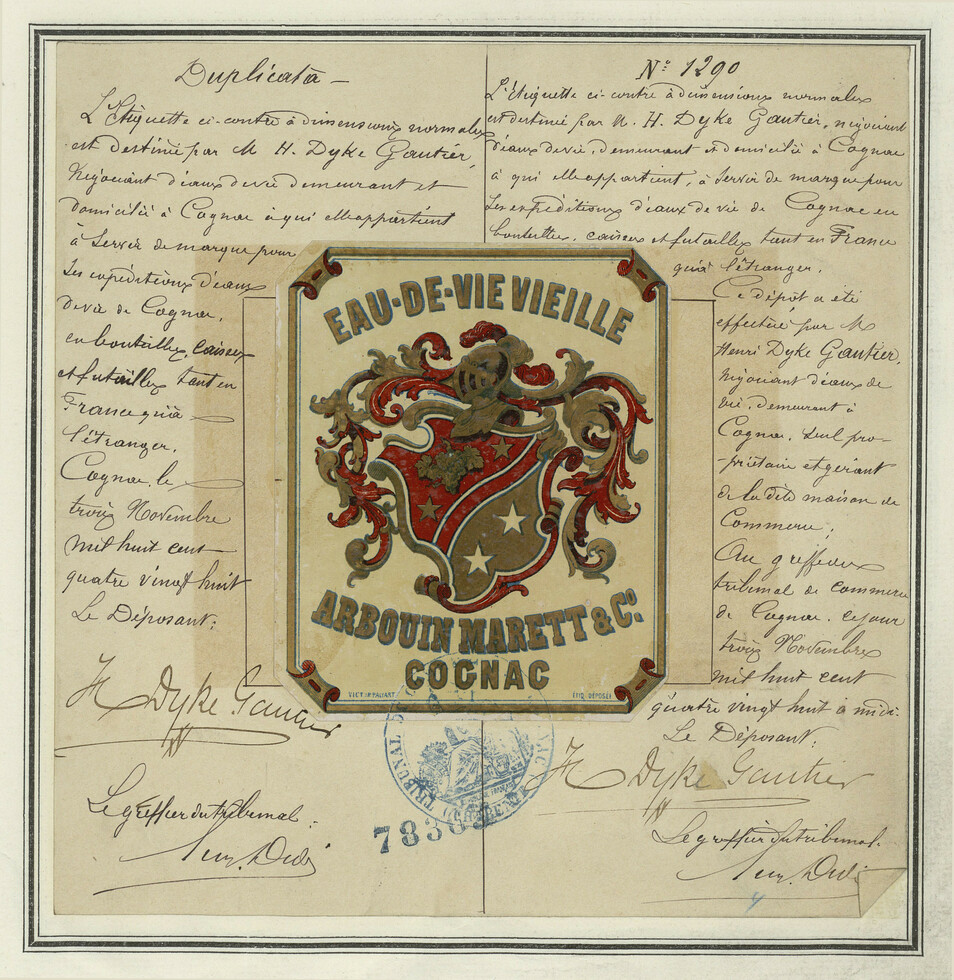 Duplicata —
L'Etiquette ci-contre à dimensions normales
est destinée par M H. Dyke Gautier,
Négociant d'eaux de vie demeurant et
domicilié à Cognac à qui elle appartient
à servir de marque pour
les expéditions d'eaux
de vie de Cognac,
en bouteilles, caisses
et futailles tant en
France qu'à
l'étranger.
Cognac, le
trois Novembre
mil huit cent
quatre vingt huit
Le Déposant:
H Dyke Gautier
Le greffier du tribunal:
N°: 1290
L'étiquette ci-contre à dimensions normales
est destinée par M. H. Dyke Gautier, négociant
d'eaux de vie, demeurant et domicilié à Cognac
à qui elle appartient, à servir de marque pour
les expéditions d'eaux de vie de Cognac en
bouteilles, caisses et futailles tant en France
qu'à l'étranger.
Ce dépôt a été
effectué par M
Henri Dyke Gautier,
négociant d'eaux de
vie, demeurant à
Cognac, seul pro-
-priétaire et gérant
de la dite maison de
Commerce;
Au greffe du
tribunal de commerce
de Cognac, ce jour
trois Novembre
mil huit cent
quatre vingt huit à midi.
Le Déposant:
H Dyke Gautier
Le greffier du tribunal.
EAU-DE-VIE VIEILLE
ARBOUIN MARETT & Cº.
COGNAC
ETIQ. DÉPOSÉE
TRIBUNAL
7836